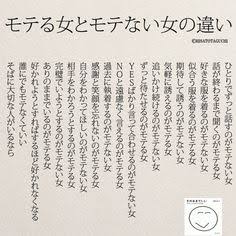 モテる女とモテない女の違い
©HISATOTAGUCHI
ひとりでずっと話すのがモテない女
話が終わるまで聞くのがモテる女
好きな服を着るのがモテない女
似合う服を着るのがモテる女
期待して誘うのがモテない女
気軽に誘えるのがモテる女
追いかけ続けるのがモテない女
ずっと待たせるのがモテる女
YESばかり言って合わせるのがモテない女
NOと遠慮なく言えるのがモテる女
過去に執着するのがモテない女
感謝と笑顔を忘れないのがモテる女
自分をわかってほしいのがモテない女
相手をわかろうとするのがモテる女
完璧でいようとするのがモテない女
ありのままでいるのがモテる女
好かれようとすればするほど好かれなくなる
誰にでもモテなくていい
そばに大切な人がいるなら